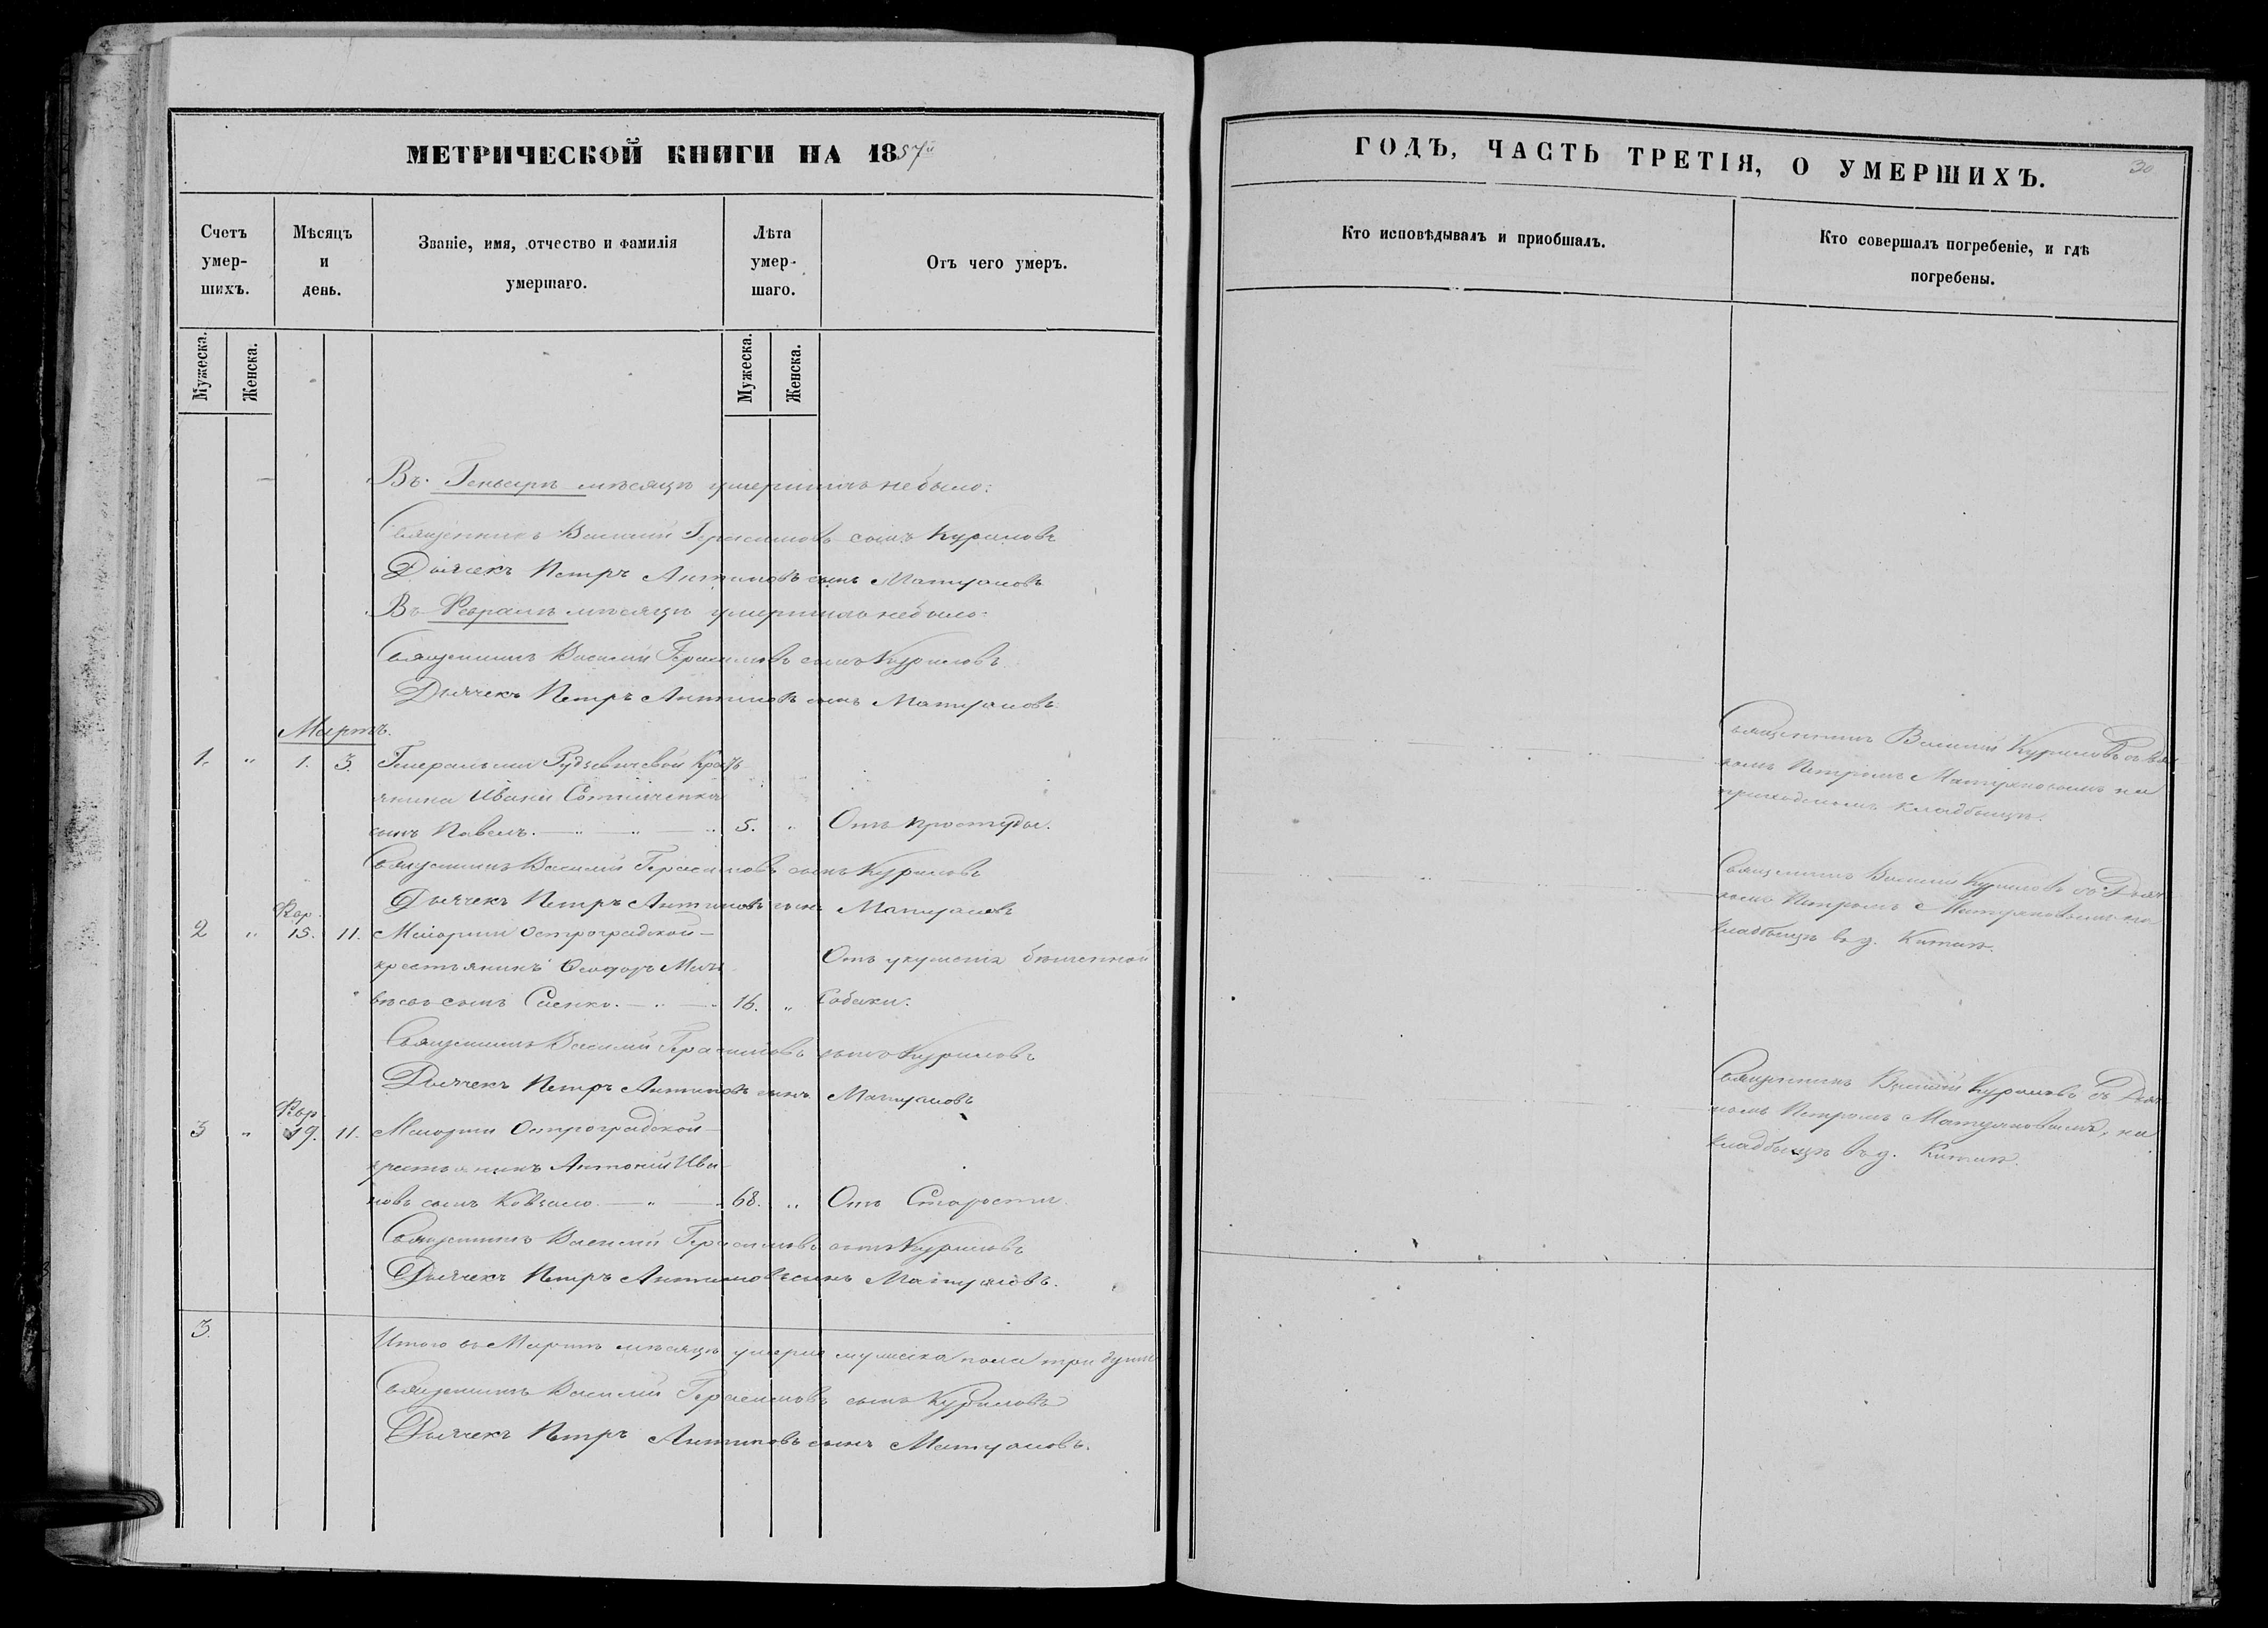 МЕТРИЧЕСКОЙ КНИГИ НА 1857й
Счетъ умер-шихъ.
Мѣсяцъ и день.
Званіе, имя, отчество и фамилія умершаго.
Лѣта умер-шаго.
Отъ чего умеръ.
Мужеска. Женска.
Мужеска. Женска.
Въ Генварѣ мѣсяцѣ умершихъ небыло:
Священникъ Василій Герасимовъ сынъ Куриловъ
Дьячекъ Петръ Антиповъ сынъ Матуяновъ
Въ Февралѣ мѣсяцѣ умершихъ небыло:
Священникъ Василій Герасимовъ сынъ Куриловъ
Дьячекъ Петръ Антиповъ сынъ Матуяновъ
Мартъ.
1. " 1. 3. Генеральши Рудзевичевой Крестъ
янина Ивана
сынъ Павелъ. 5. " Отъ простуды.
Священникъ Василій Герасимовъ сынъ Куриловъ
Дьячекъ Петръ Антиповъ сынъ Матуяновъ
Фвр
2 " 15. 11. Маіорши Остроградской
крестьянинъ Ѳеодоръ
сынъ Саенко. 16. " Отъ укушенія бешенной
Собаки.
Священникъ Василій Герасимовъ сынъ Куриловъ
Дьячекъ Петръ Антиповъ сынъ Матуяновъ
Фвр
3 " 19. 11. Маіорши Остроградской
крестьянинъ Антоній Ива
новъ сынъ 68. " Отъ Старости.
Священникъ Василій Герасимовъ сынъ Куриловъ
Дьячекъ Петръ Антиповъ сынъ Матуяновъ.
3. Итого въ Мартѣ мѣсяцѣ умерло мужеска пола три души
Священникъ Василій Герасимовъ сынъ Куриловъ
Дьячекъ Петръ Антиповъ сынъ Матуяновъ.
ГОДЪ, ЧАСТЬ ТРЕТІЯ, О УМЕРШИХЪ.
30
Кто исповѣдывалъ и пріобщалъ.
Кто совершалъ погребеніе, и гдѣ
погребены.
Священникъ Василій Куриловъ съ Дьяч
комъ Петромъ Матуяновымъ на
приходскомъ кладбищѣ.
Священникъ Василій Куриловъ съ Дьяч
комъ Петромъ Матуяновымъ на
кладбищѣ въ д.
Священникъ Василій Куриловъ съ Дьяч
комъ Петромъ Матуяновымъ, на
кладбищѣ въ д.